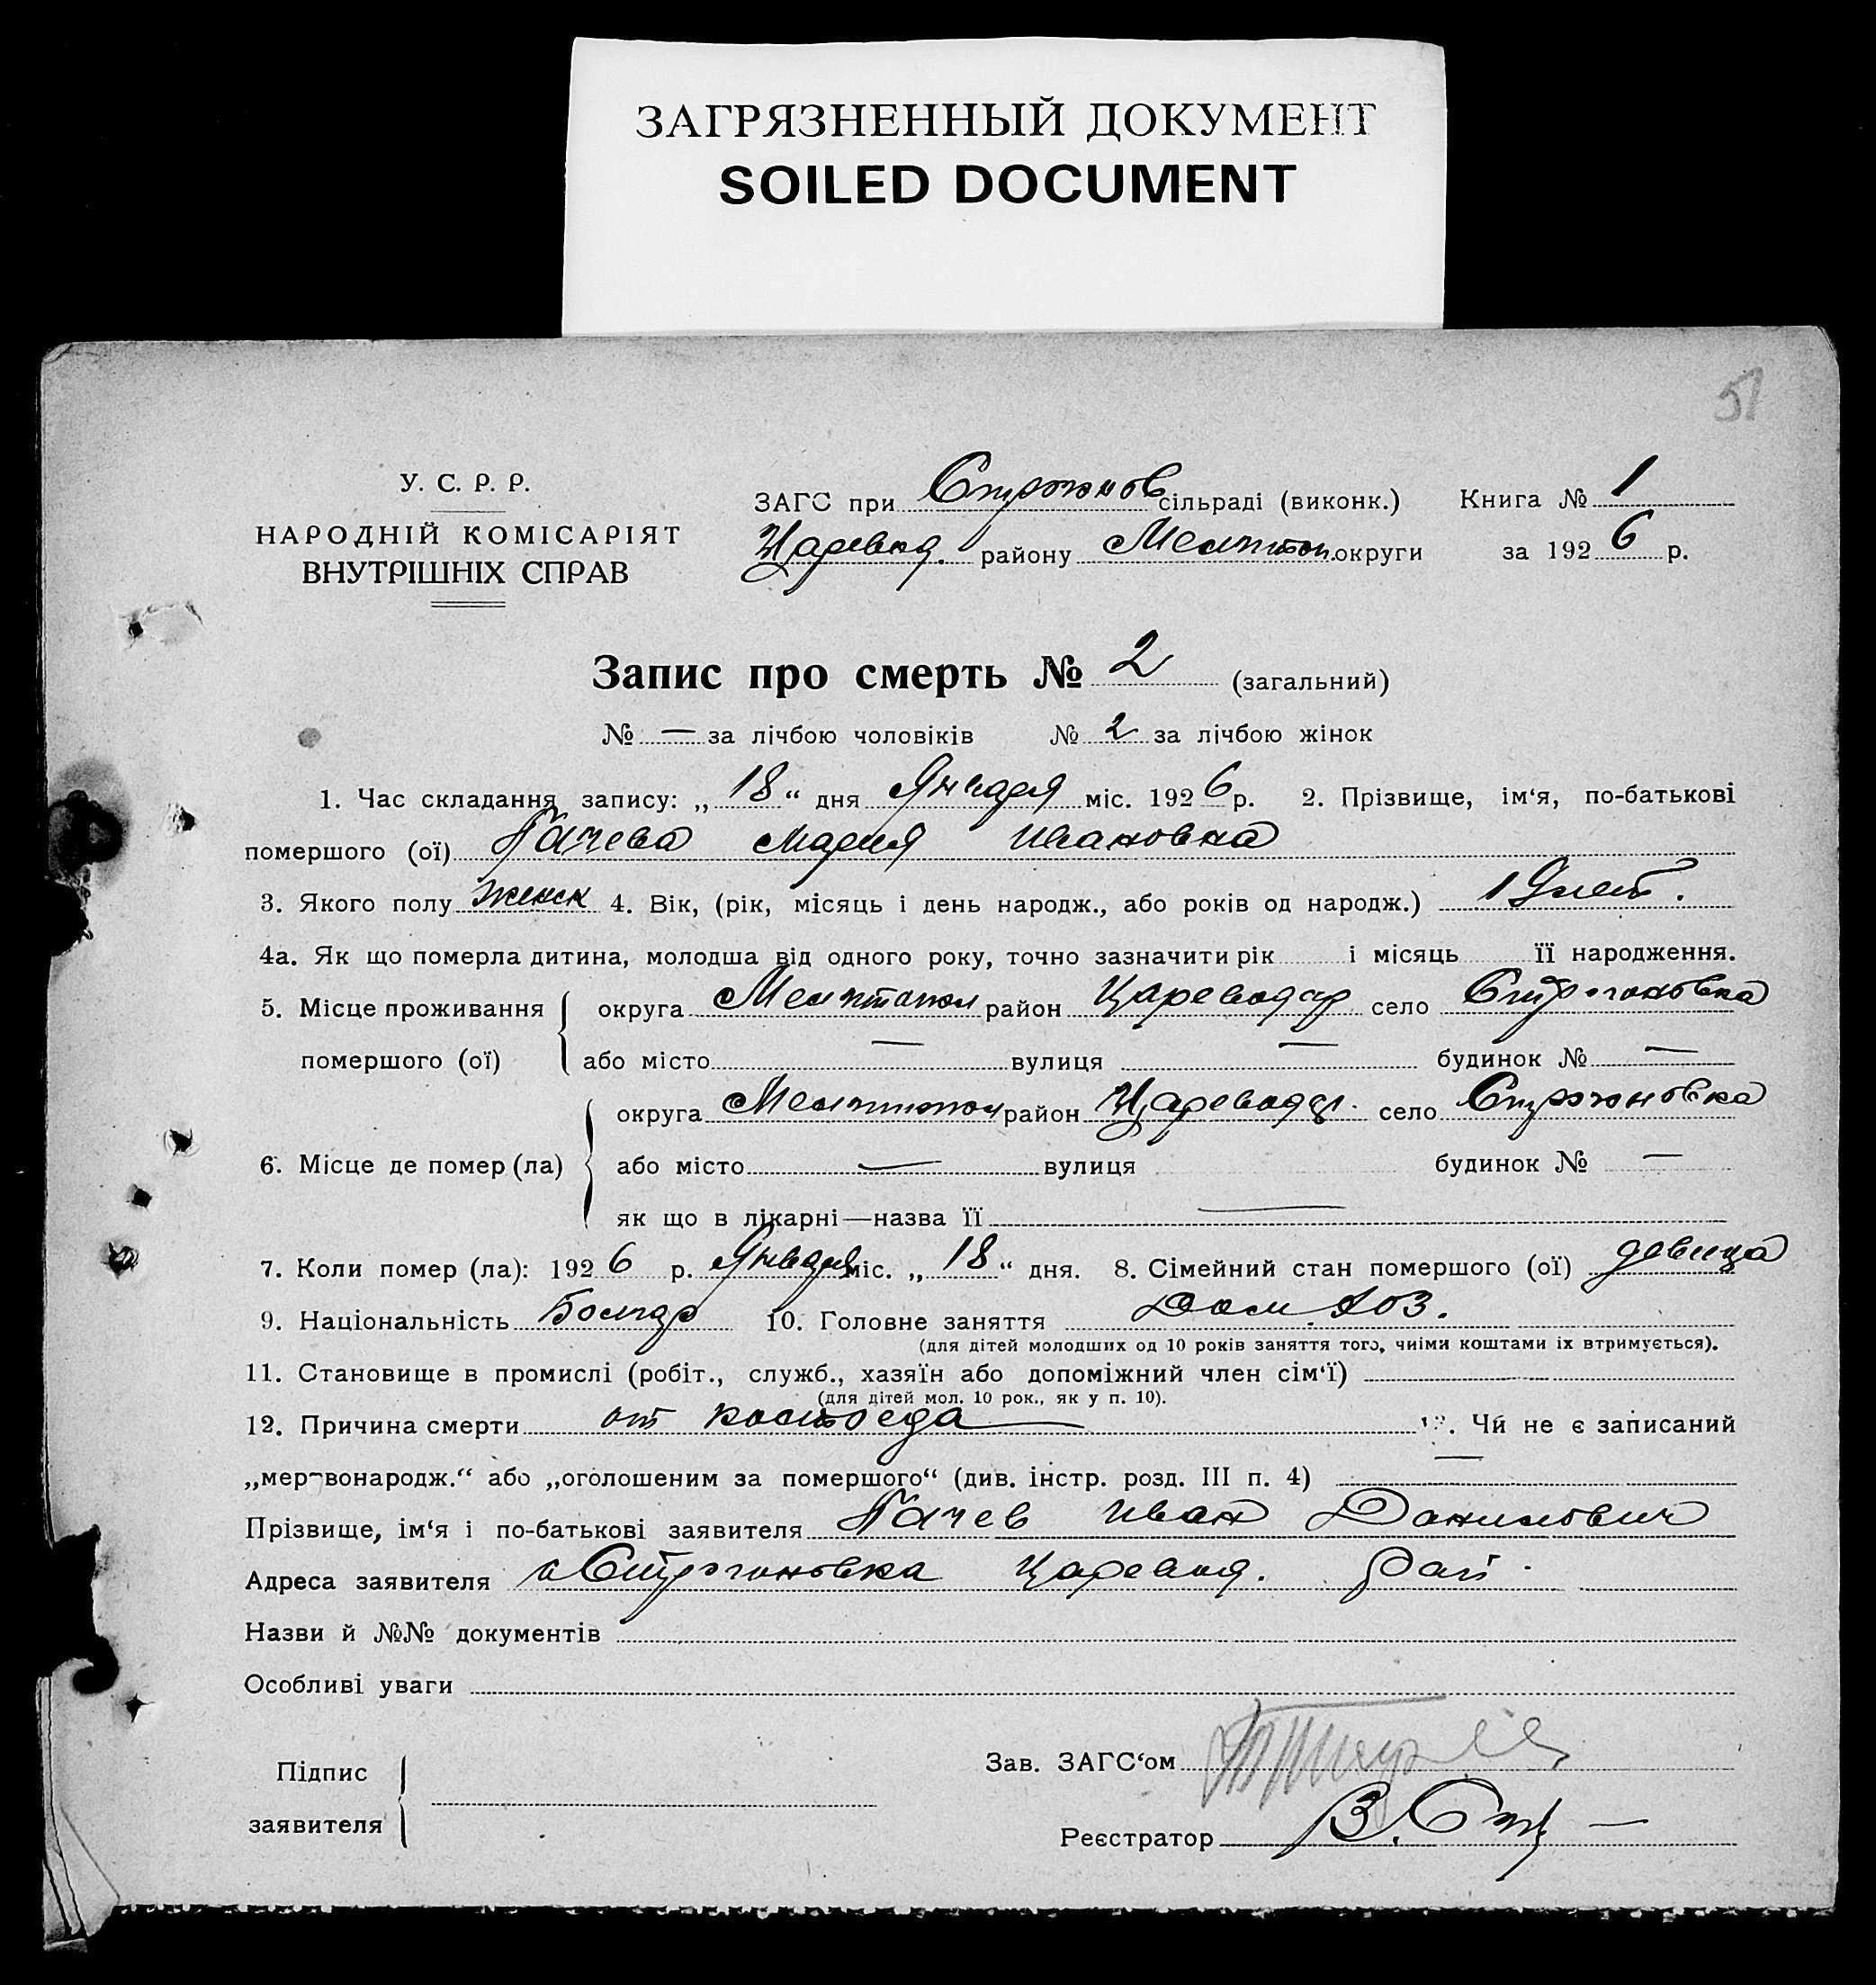 ЗАГРЯЗНЕННЫЙ ДОКУМЕНТ
SOILED DOCUMENT
51
У. С. Р. Р.
НАРОДНІЙ КОМІСАРІЯТ
ВНУТРІШНІХ СПРАВ
ЗАГС при Строгонов сільраді (виконк.) Книга № 1
Царевод. району Мелитоп. округи за 1926 р.
Запис про смерть № 2 (загальний)
№ — за лічбою чоловіків № 2 за лічбою жінок
1. Час складання запису: „18“ дня Января міс. 1926 р. 2. Прізвище, ім‘я, по-батькові
помершого (ої) Гачева Мария Ивановна
3. Якого полу женск 4. Вік, (рік, місяць і день народж., або років од народж.) 19 лет.
4а. Як що померла дитина, молодша від одного року, точно зазначити рік і місяць її народження.
5. Місце проживання округа Мелитопол район Цареводар село Строгоновка
помершого (ої) або місто — вулиця — будинок № —
округа Мелитопол район Цареводар. село Строгоновка
6. Місце де помер (ла) або місто — вулиця будинок № —
як що в лікарні—назва її —
7. Коли помер (ла): 1926 р. Января міс. „18“ дня. 8. Сімейний стан помершого (ої) девица
9. Національність Болгар 10. Головне заняття Дом. хоз.
(для дітей молодших од 10 років заняття того, чиїми коштами їх втримується).
11. Становище в промислі (робіт., служб., хазяїн або допоміжний член сім‘ї)
(для дітей мол. 10 рок., як у п. 10).
12. Причина смерти от костоеда — 12. Чи не є записаний
„мертвонародж.“ або „оголошеним за помершого“ (див. інстр. розд. III п. 4) —
Прізвище, ім‘я і по-батькові заявителя Гачев Иван Данилович
Адреса заявителя с Строгоновка Царевод. рай.
Назви й №№ документів
Особливі уваги
Підпис
заявителя
Зав. ЗАГС‘ом
Реєстратор В.